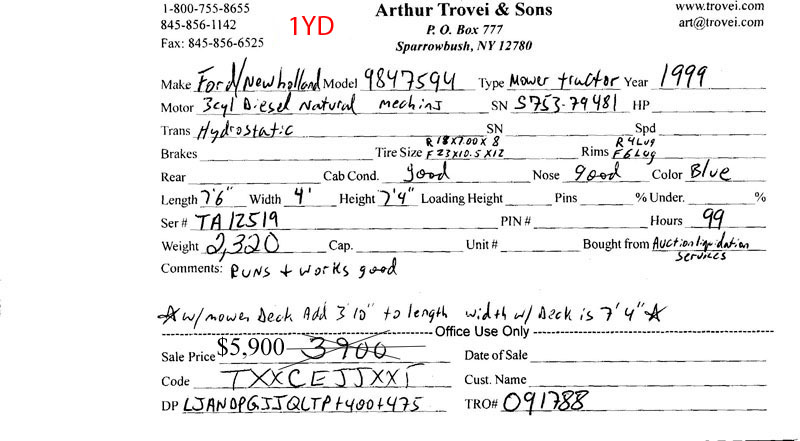 1-800-755-8655 Arthur Trovei & Sons www.trovei.com
845-856-1142 1YD P. O. Box 777 art@trovei.com
Fax: 845-856-6525 Sparrowbush, NY 12780
Make Ford/Newholland Model 9847594 Type Mower tractor Year 1999
Motor 3cyl Diesel Natural SN S753-79481 HP
Trans Hydrostatic SN Spd
Brakes Tire Size R 18X7.00X8 F 23X10.5X12 Rims R 4Lug F 6Lug
Rear Cab Cond. good Nose good Color Blue
Length 7'6" Width 4' Height 7'4" Loading Height Pins % Under. %
Ser # TA12519 PIN # Hours 99
Weight 2,320 Cap. Unit # Bought from Auction liquidation services
Comments: Runs + works good
☆w/mower Deck Add 3'10" to length width w/ Deck is 7'4"☆
Office Use Only
Sale Price $5,900 3900 Date of Sale
Code TXXCEJJXXT Cust. Name
DP LJANDPGJJQLTP+400+475 TRO# 091788